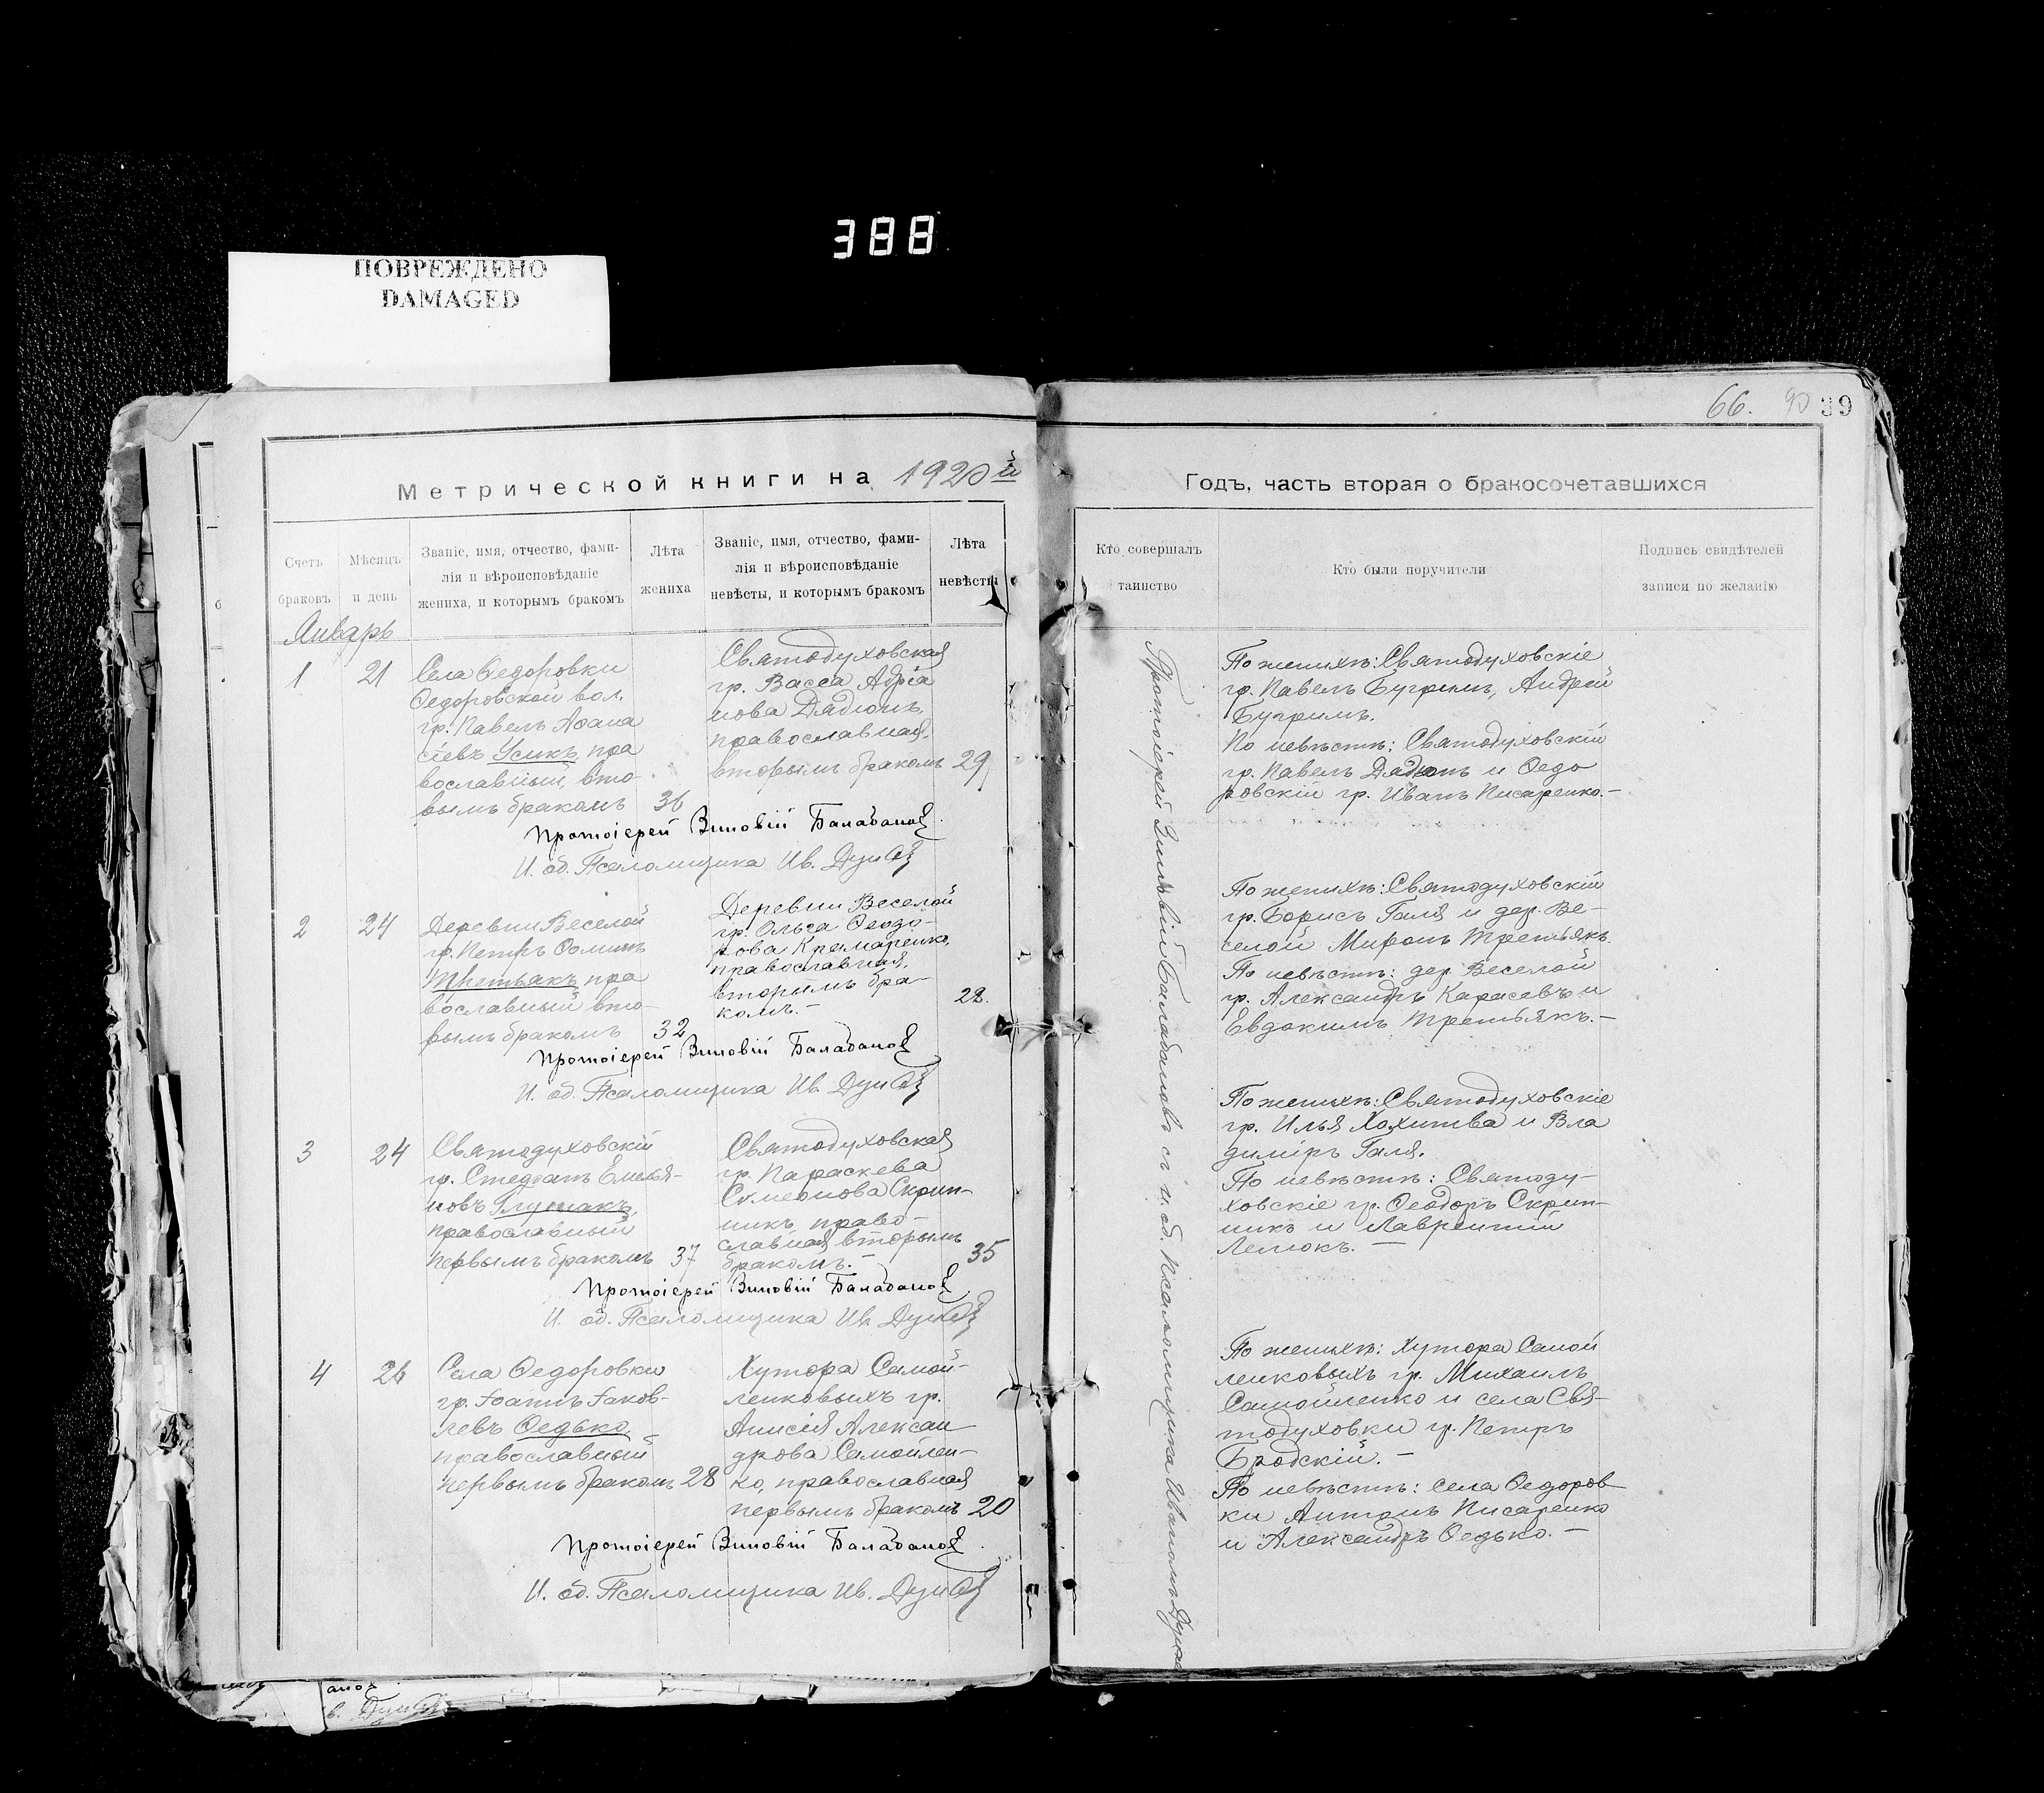 388
ПОВРЕЖДЕНО
DAMAGED
66. 90 39
Метрической книги на 1920й
Годъ, часть вторая о бракосочетавшихся
Счетъ
браковъ
Мѣсяцъ
и день
Званіе, имя, отчество, фами-
лія и вѣроисповѣданіе
жениха, и которымъ бракомъ
Лѣта
жениха
Званіе, имя, отчество, фами-
лія и вѣроисповѣданіе
невѣсты, и которымъ бракомъ
Лѣта
невѣсты
Кто совершалъ
таинство
Кто были поручители
Подпись свидѣтелей
записи по желанію
Январь
1
21
Села Ѳедоровки
Ѳедоровской вол.
гр. Павелъ Аѳана
сіевъ Усикъ, пра
вославный, вто-
рымъ бракомъ
36
Святодуховская
гр. Васса Адріа
нова Дядюнъ
православная,
вторымъ бракомъ
29
Протоіерей Зиновій Балабанов
И. об. Псаломщика Ив.
По женихѣ: Святодуховскіе
гр. Павелъ Бугримъ, Андрей
Бугримъ.
По невѣстѣ: Святодуховскій
гр. Павелъ Дядюнъ и Ѳедо
ровскій гр. Иванъ Писаренко.-
2
24
Деревни Веселой
гр. Петръ Ѳоминъ
Третьякъ, пра
вославный вто-
рымъ бракомъ
32
Деревни Веселой
гр. Ольга Ѳеодо-
рова Крамаренко,
православная,
вторымъ бра-
комъ.-
28.
Протоіерей Зиновій Балабанов
И. об. Псаломщика Ив.
По женихѣ: Святодуховскій
гр. Борисъ Галя и дер. Ве-
селой Миронъ Третьякъ.
По невѣстѣ: дер. Веселой
гр. Александръ Карасевъ и
Евдокимъ Третьякъ.-
3
24
Святодуховскій
гр. Стефанъ Емелья-
новъ Глушакъ,
православный
первымъ бракомъ
37
Святодуховская
гр. Параскева
Симеонова Скрип-
никъ, право-
славная вторымъ
бракомъ.-
35
Протоіерей Зиновій Балабанов
И. об. Псаломщика Ив.
По женихѣ: Святодуховскіе
гр. Илья Хохитва и Вла
диміръ Галя.
По невѣстѣ: Святоду-
ховскіе гр. Ѳеодоръ Скрип-
никъ и Лаврентій
4
26
Села Ѳедоровки
гр. Іоаннъ Іаков-
левъ Ѳедько
православный
первымъ бракомъ
28
Хутора Самой-
ленковыхъ гр.
Анисія Алексан
дрова Самойлен-
ко, православная
первымъ бракомъ
20
Протоіерей Зиновій Балабанов
И. об. Псаломщика Ив.
По женихѣ: Хутора Самой
ленковыхъ гр. Михаилъ
Самойленко и села Свя-
тодуховки гр. Петръ
Бродскій.-
По невѣстѣ: села Ѳедоров
ки Антонъ Писаренко
и Александръ Ѳедько.-
Протоіерей Зиновій Балабановъ съ и. об. Псаломщика Иваномъ